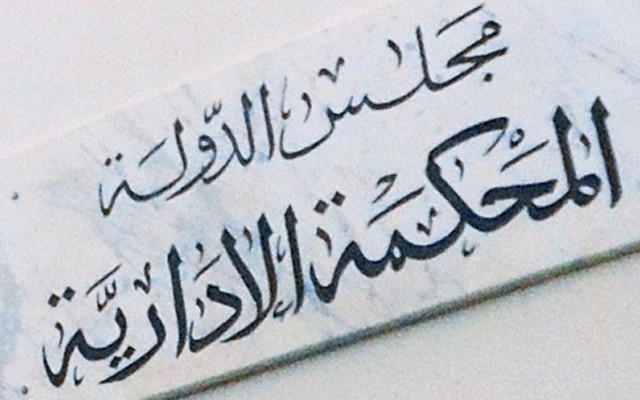 مجلس الدّولة
المحكمة الادَاريَّة